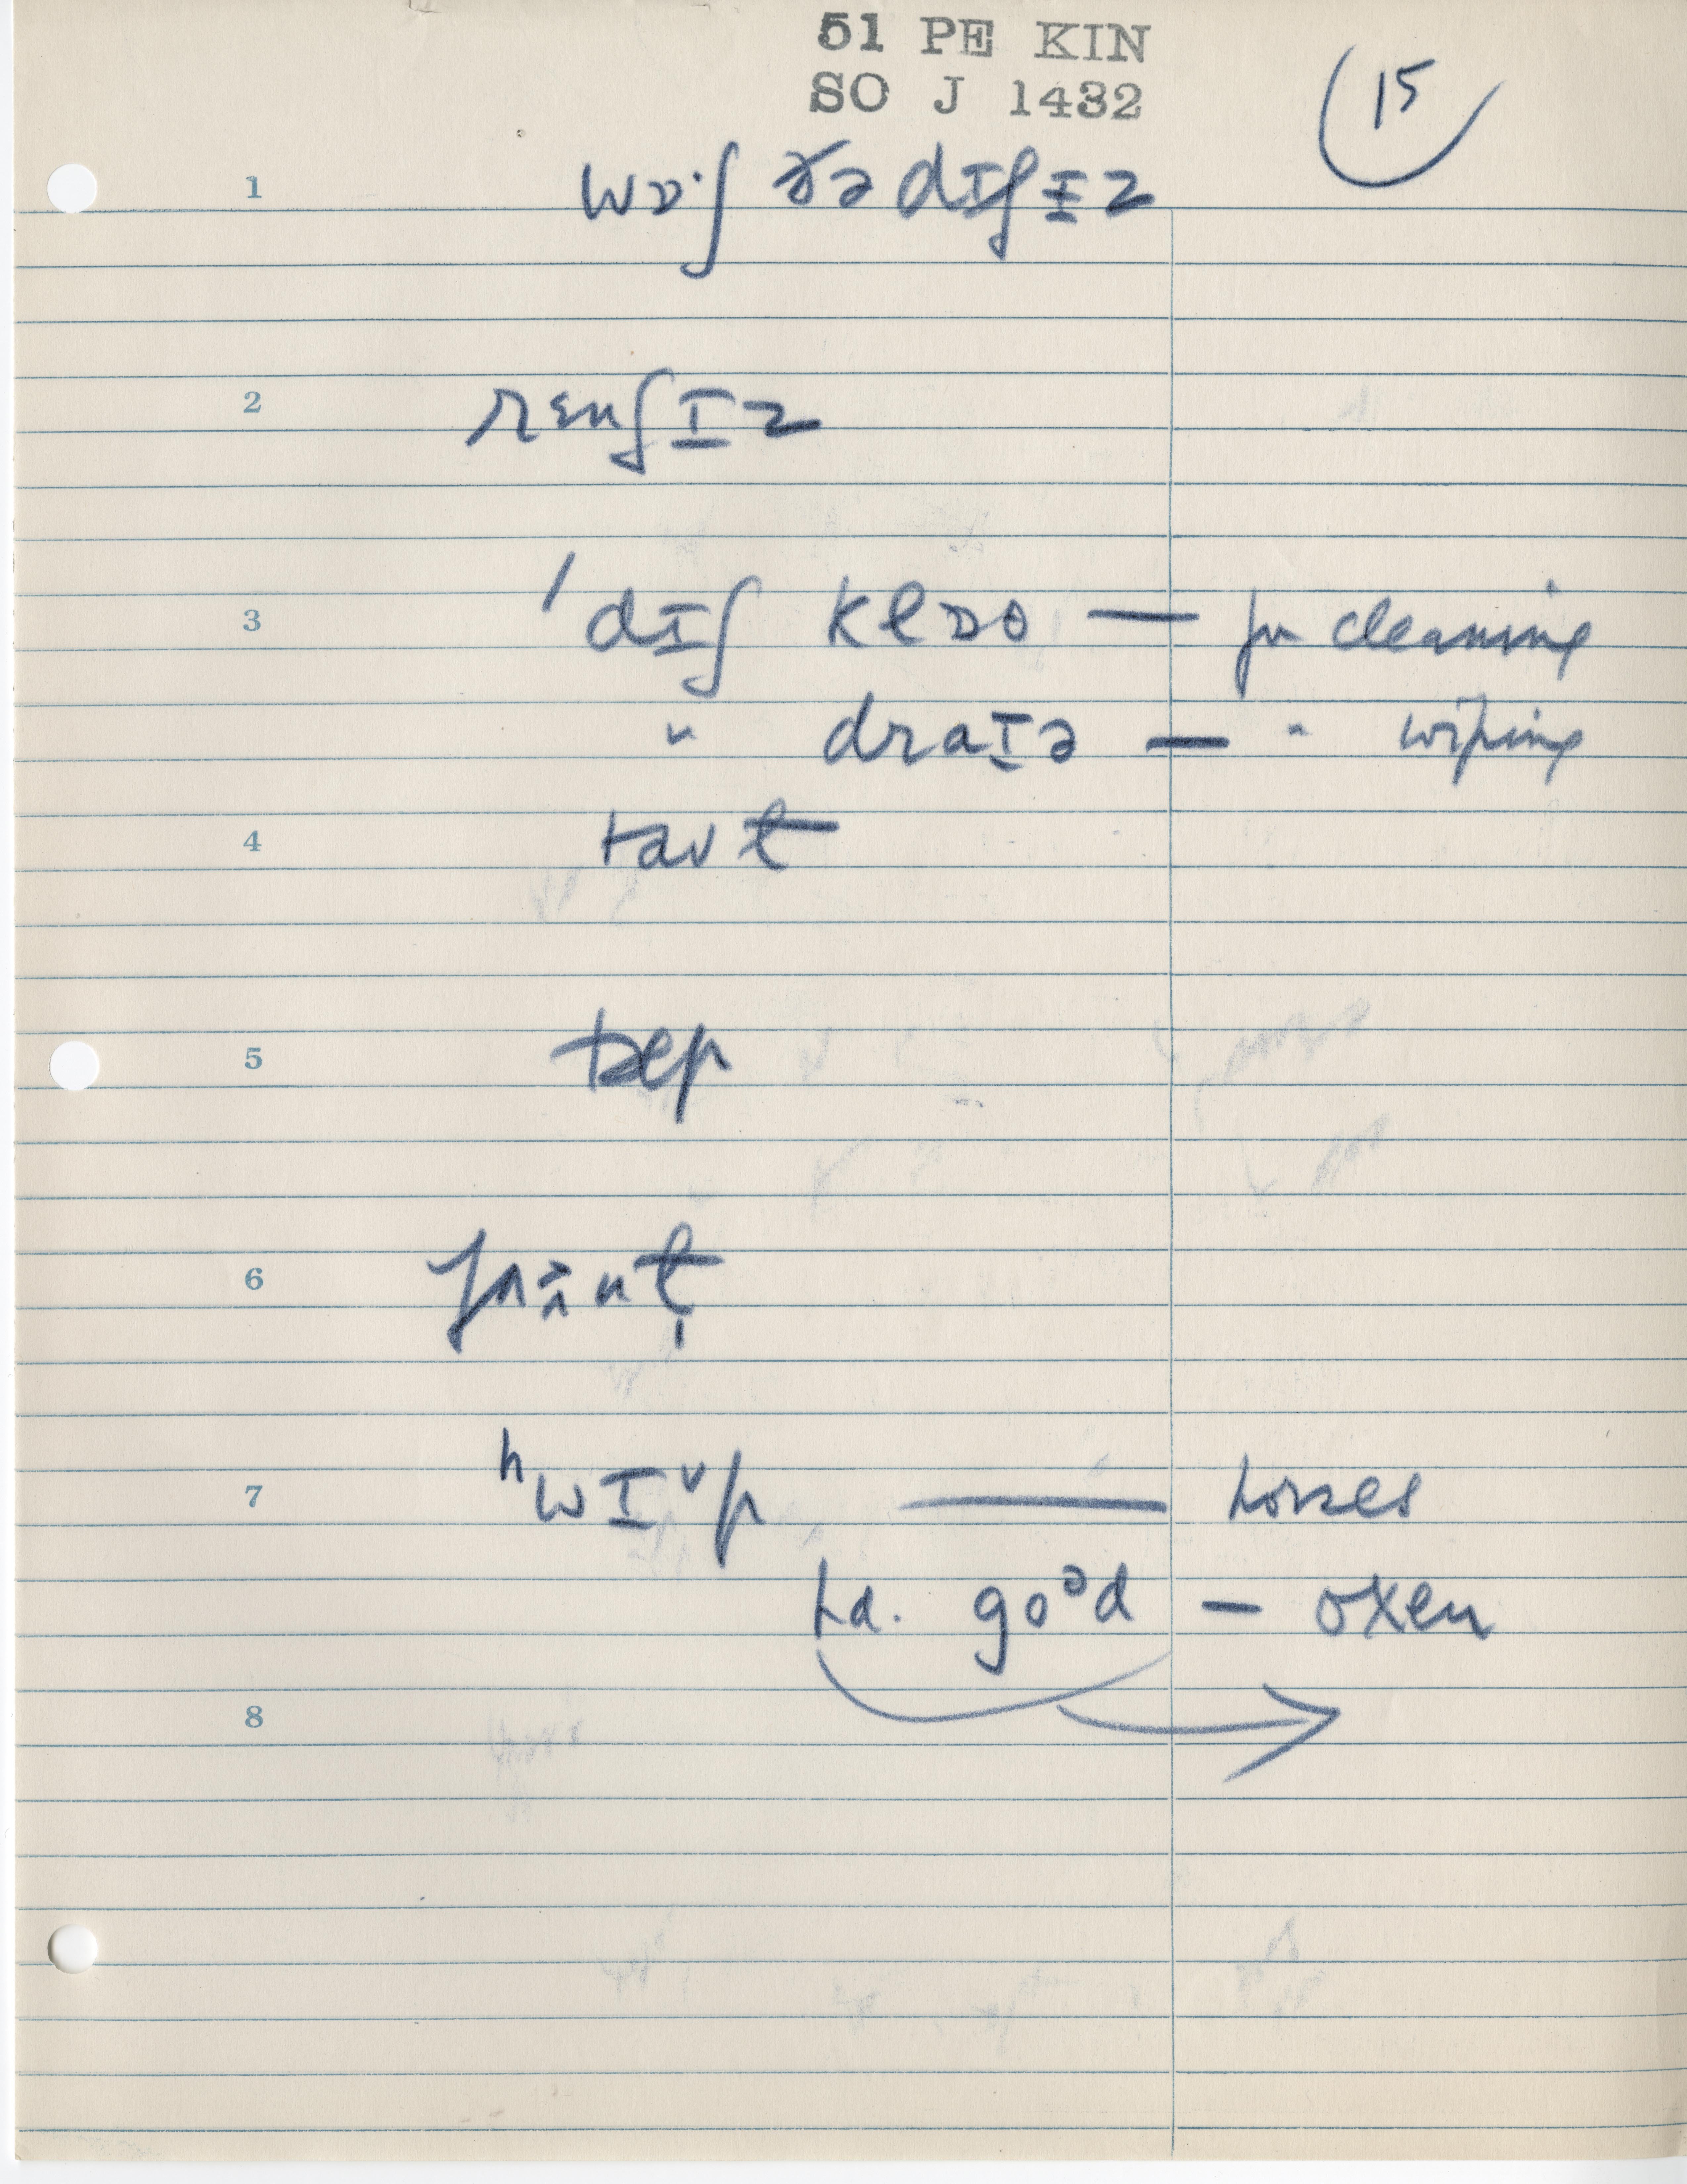 51 PE KIN
SO J 1432
15
1 wɒ·ʃ ðə dɪʃɪz
2 rɛnʃɪz
3 ˈdɪʃ klɒθ — for cleaning
" draɪə — " wiping
4 taʊt
5 tæp
6
7 ʰwɪᵛp — horses
goᵊd — oxen
8